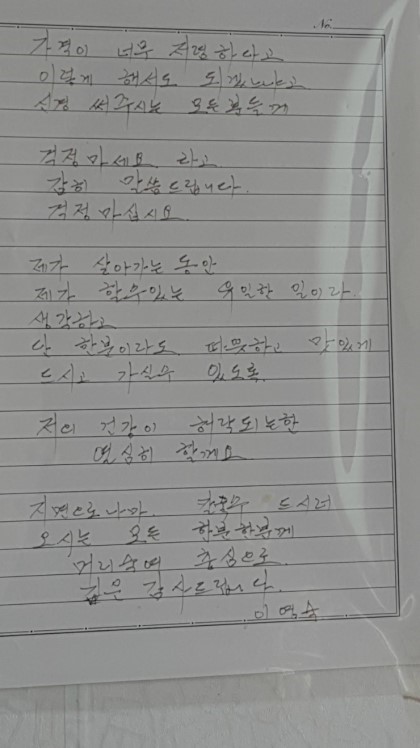 No
가격이 너무 저렴하다고
이렇게 해서도 되겠냐고
신경 써주시는 모든분들께
걱정마세요 라고
감히 말씀드립니다.
걱정마십시요.
제가 살아가는 동안
제가 할수있는 유일한 일이라.
생각하고
단 한분이라도 따뜻하고 맛있게
드시고 가실수 있도록.
저의 건강이 허락되는한
열심히 할게요
지면으로나마. 칼국수 드시러
오시는 모든 한분한분께
머리숙여 충심으로.
깊은 감사드립니다.
이영숙